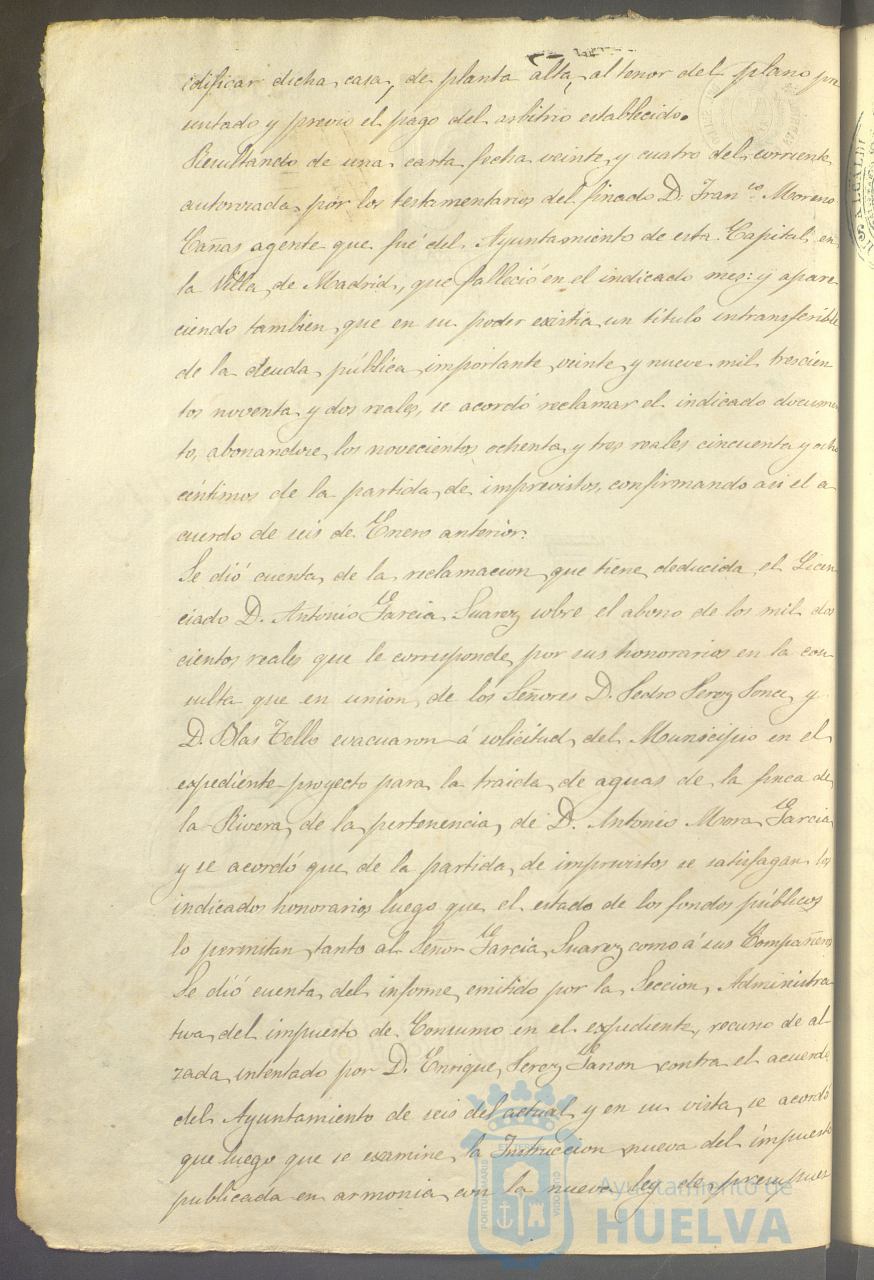 edificar dicha casa, de planta alta, al tenor del plano pre
sentado y previo el pago del arbitrio establecido.
Resultando de una carta fecha veinte y cuatro del corriente
autorizada por los testamentarios del finado D. Fran.co Moreno
Cañas agente que fué del Ayuntamiento de esta Capital en
la Villa de Madrid, que falleció en el indicado mes: y apare
ciendo tambien que en su poder existia un título intransferible
de la deuda pública importante veinte y nueve mil trescien
tos noventa y dos reales, se acordó reclamar el indicado documen
to, abonandose los novecientos ochenta y tres reales cincuenta y ocho
céntimos de la partida de imprevistos, confirmando asi el a
cuerdo de seis de Enero anterior.
Se dió cuenta de la reclamacion que tiene deducida el Licen
ciado D. Antonio Garcia Suarez sobre el abono de los mil dos
cientos reales que le corresponde por sus honorarios en la con
sulta que en union de los Señores D. Pedro Perez y
D. Blas Tello evacuaron á solicitud del Municipio en el
expediente proyecto para la traida de aguas de la finca de
la Rivera, de la pertenencia de D. Antonio Mora Garcia
y se acordó que de la partida de imprevistos se satisfagan los
indicados honorarios luego que el estado de los fondos públicos
lo permitan tanto al Señor Garcia Suarez como á sus Compañeros
Se dió cuenta del informe emitido por la Seccion Administra
tiva del impuesto de Consumo en el expediente recurso de al
zada intentado por D. Enrique Perez contra el acuerdo
del Ayuntamiento de seis del actual y en su vista se acordó
que luego que se examine la Instruccion nueva del impuesto
publicada en armonia con la nueva ley de presupues
Ayuntamiento de
HUELVA